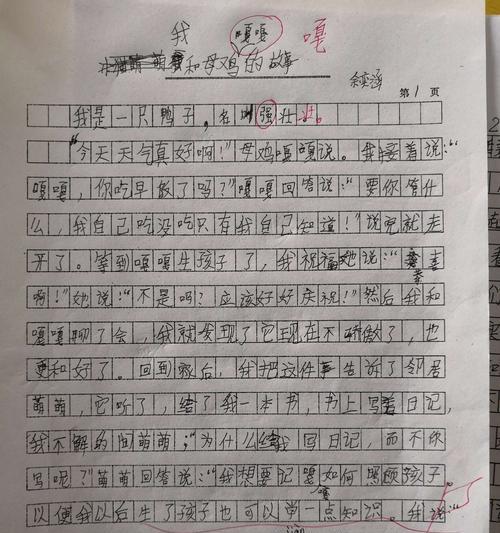 我 嘎嘎 嘎
和母鸡的故事
第1页
我是一只鸭子，名叫强壮。壮
“今天天气真好啊！”母鸡嘎嘎说。我接着说：“
嘎嘎，你吃早饭了吗？”嘎嘎回答说：“要你管什
么，我自己吃没吃只有我自己知道！”说完就走
开了。等到嘎嘎生孩子了，我祝福她说：“恭喜
啊！”她说：“不是吗？应该好好庆祝！”然后我和
嘎嘎聊了会，我就发现了它现在不骄傲了，也
更和好了。回到家后，我把这件事告诉了邻居
萌萌，它听了，给了我一本书，书上写着日记，
我不解的问萌萌；“为什么给我写日记，而不你
写呢？”萌萌回答说：“我想要记嘎嘎如何照顾孩子
以便我以后生了孩子也可以学一点知识。我说“